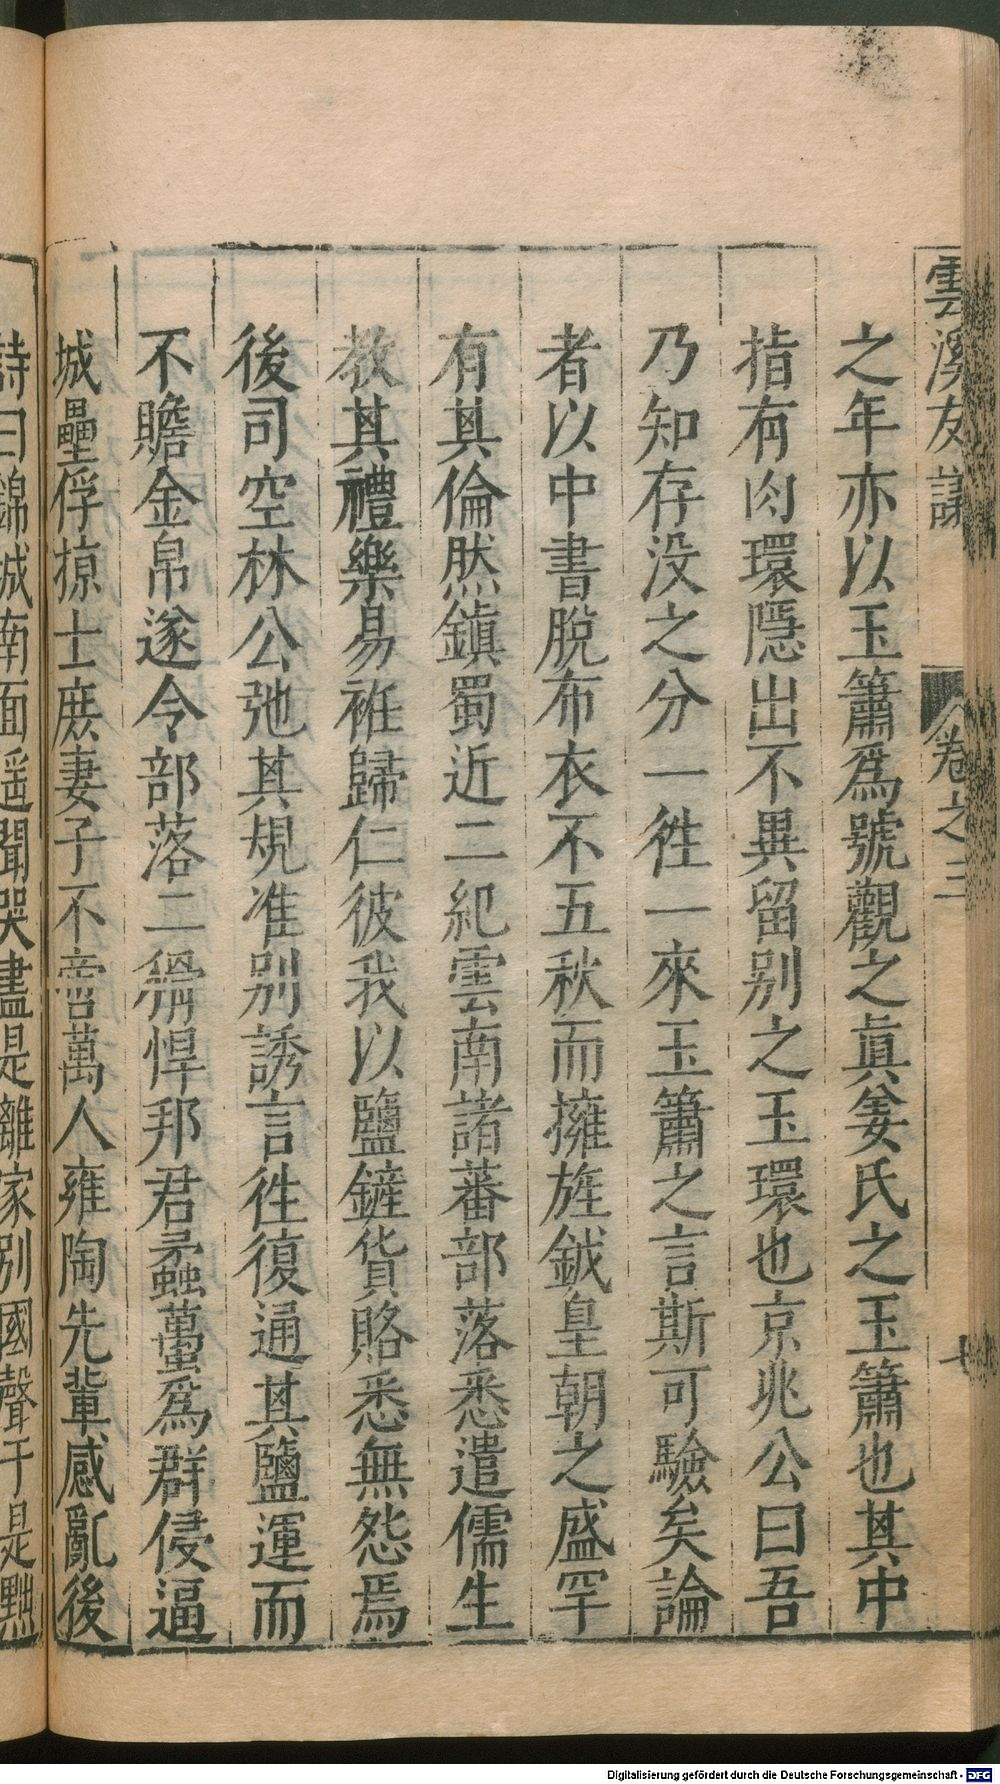 雲溪友議 卷之三 七
之年亦以玉簫爲號觀之眞姜氏之玉簫也其中
指有肉環隱出不異留别之玉環也京兆公曰吾
乃知存没之分一徃一來玉簫之言斯可驗矣論
者以中書脫布衣不五秋而擁旌鉞皇朝之盛罕
有其倫然鎮蜀近二紀雲南諸蕃部落悉遣儒生
教其禮樂易袵歸仁彼我以鹽鏟貨賂悉無怨焉
後司空林公弛其規准别誘言徃復通其鹽運而
不贍金帛遂令部落二 悍邦君蟊蠆爲群侵逼
城壘俘掠士庶妻子不啻萬人雍陶先輩感亂後
詩曰錦城南面遥聞哭盡是離家别國聲于是黜
Digitalisierung gefördert durch die Deutsche Forschungsgemeinschaft - DFG